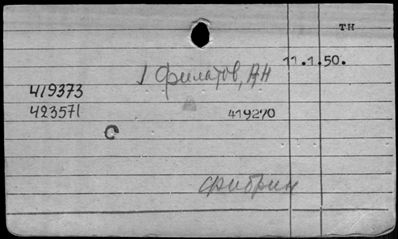 тн
11.1.50.
1 Филатов, АН
419373
423571
419270
фибрин